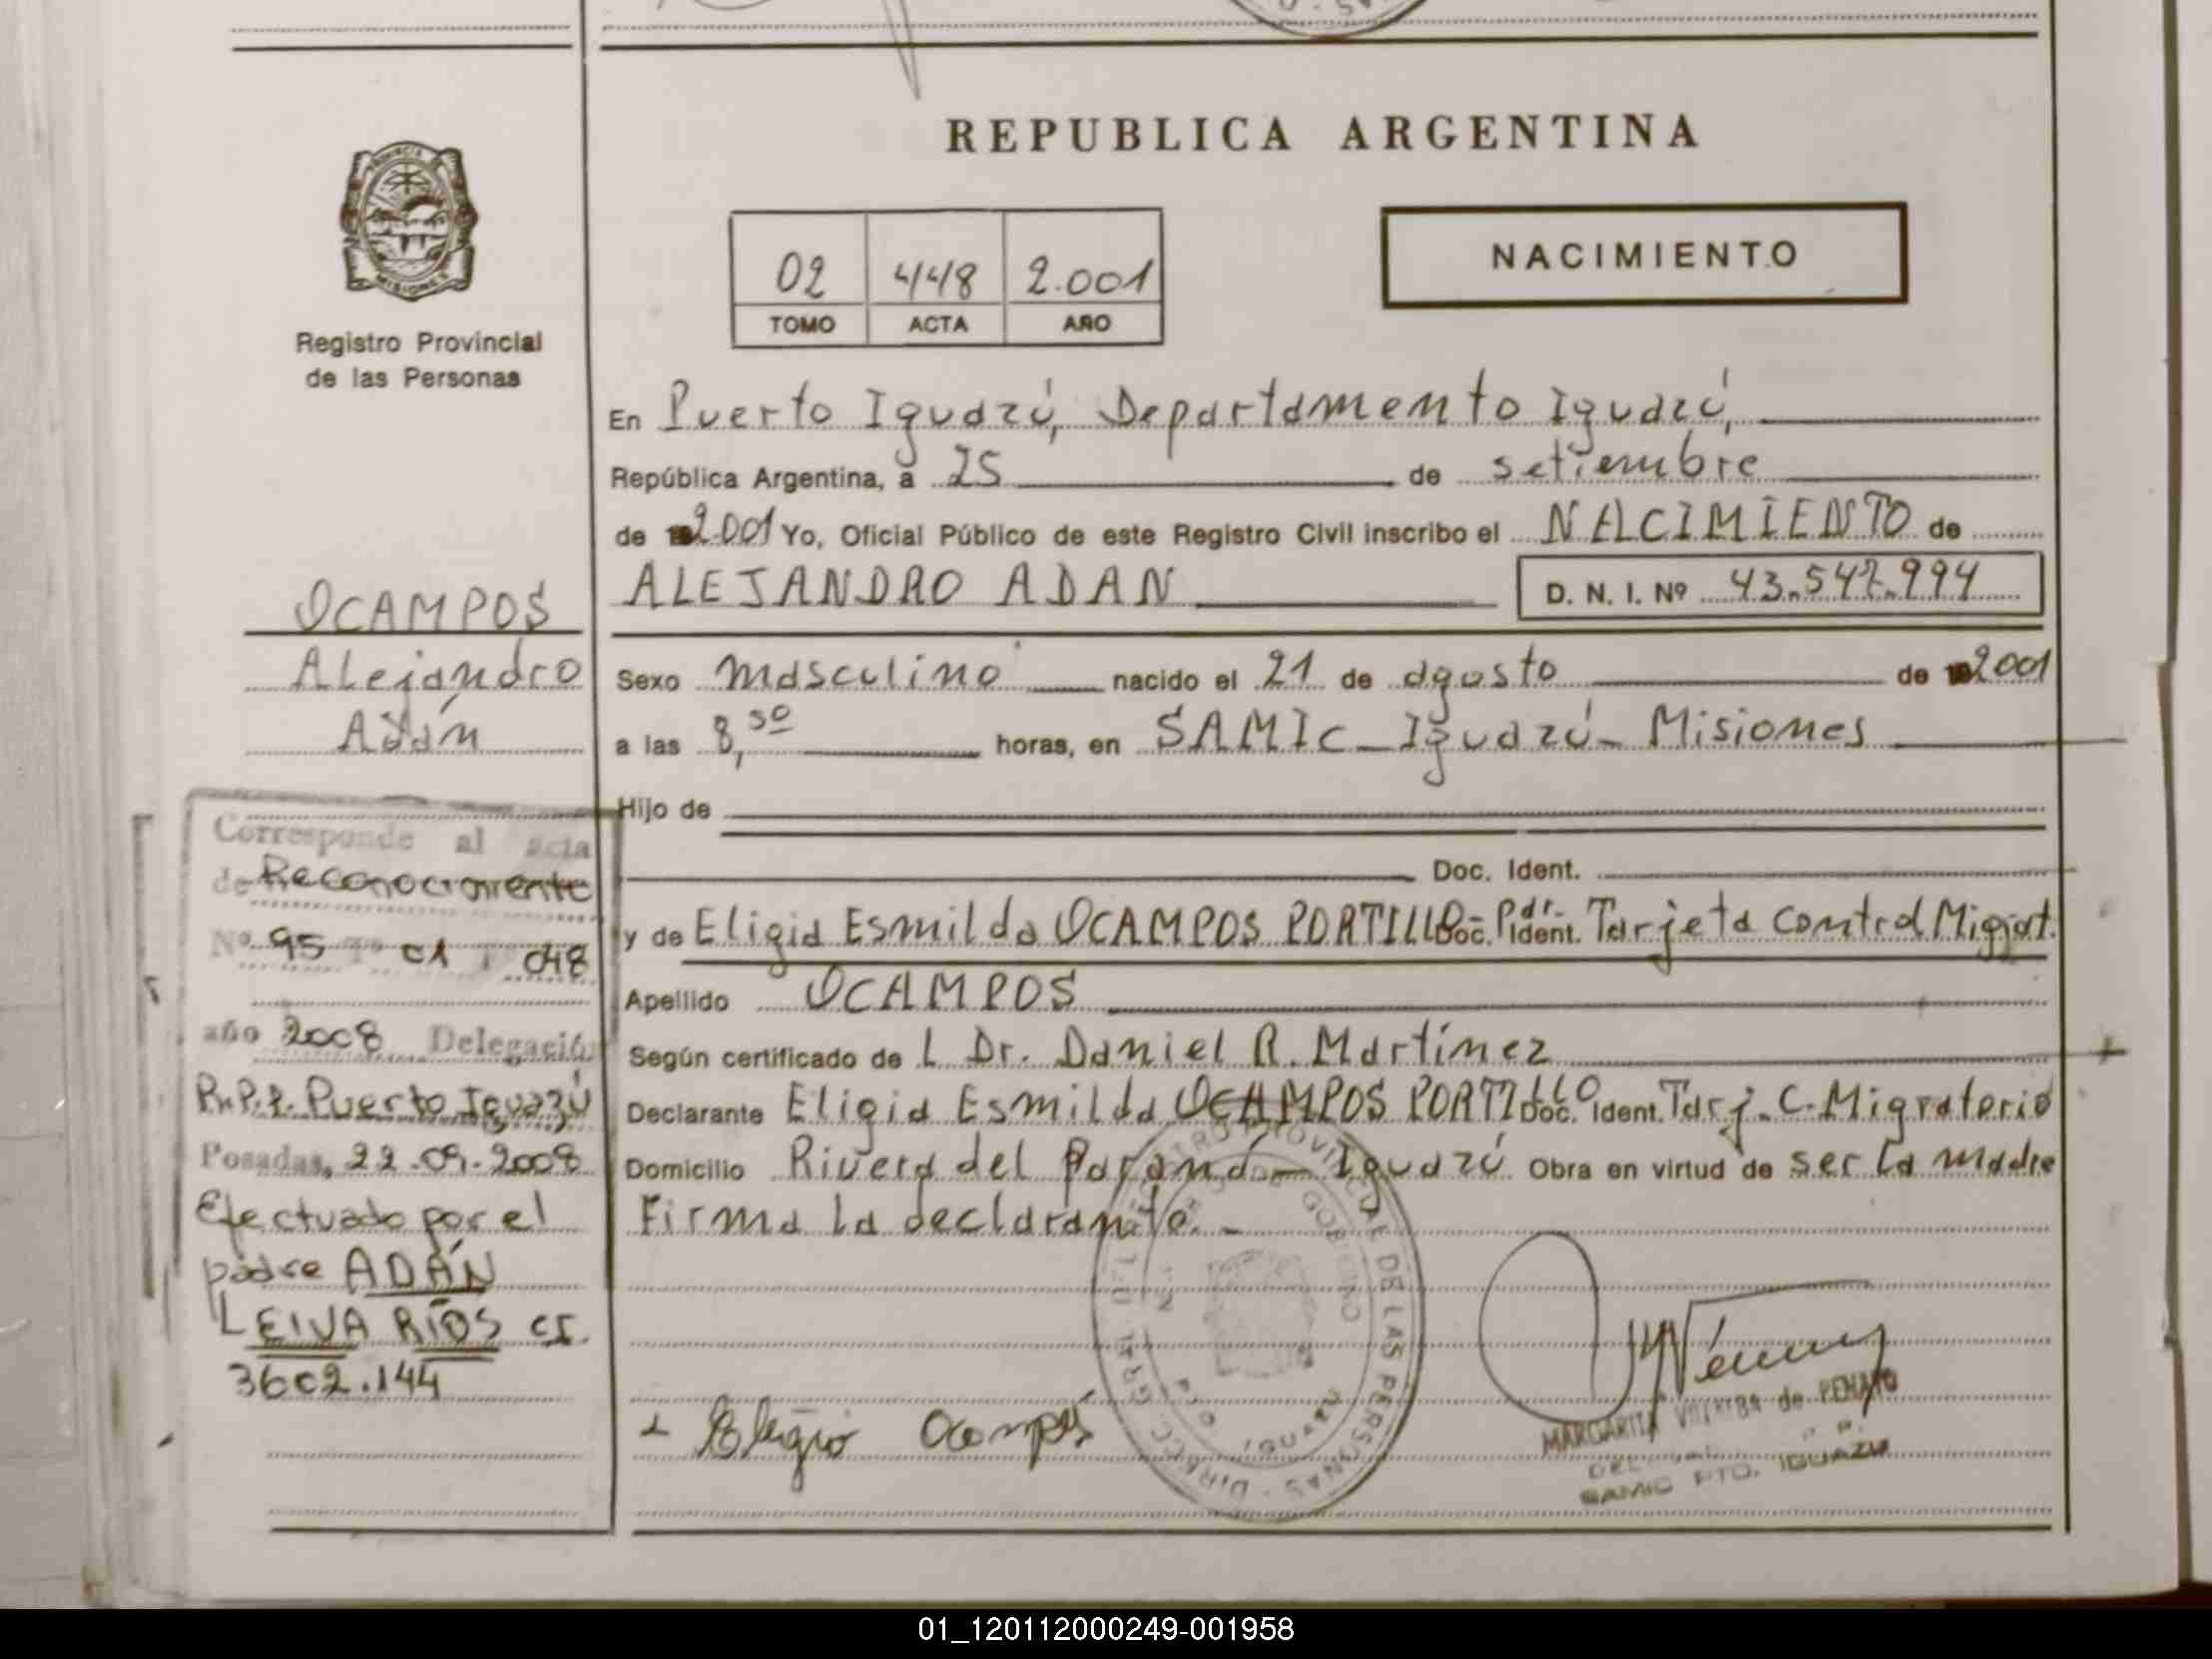 REPUBLICA ARGENTINA
PROVINCIA DE
MISIONES
Registro Provincial
de las Personas
02 448 2.001
TOMO ACTA AÑO
NACIMIENTO
En Puerto Iguazú, Departamento Iguazú,
República Argentina, a 25 de setiembre
de 2.001 Yo, Oficial Público de este Registro Civil inscribo el NACIMIENTO de
ALEJANDRO ADAN D. N. I. Nº 43.547.994
OCAMPOS
Alejandro
Adán
Sexo masculino nacido el 21 de agosto de 2001
a las 8,50 horas, en SAMIC Iguazú - Misiones
Hijo de
Doc. Ident.
y de Eligia Esmilda OCAMPOS PORTILLO Doc. Ident. Tarjeta Control Migrat.
Apellido OCAMPOS
Según certificado de l Dr. Daniel R. Martínez
Declarante Eligia Esmilda OCAMPOS PORTILLO Doc. Ident. Tarj. C. Migratorio
Domicilio Rivera del Paraná - Iguazú Obra en virtud de ser la madre
Firma la declarante. -
Corresponde al acta
de Reconocimiento
Nº 95 Tº 01 Fº 048
año 2008 Delegación
R.P.P. Puerto Iguazú
Posadas, 22-09-2008
Efectuado por el
padre ADÁN
LEIVA RÍOS CI.
3602.144
Eligia Ocampos
DIRECC. GRAL. DEL REGISTRO PROVINCIAL DE LAS PERSONAS
IGUAZU
MARGARITA de
SAMIC PTO. IGUAZU
01_120112000249-001958